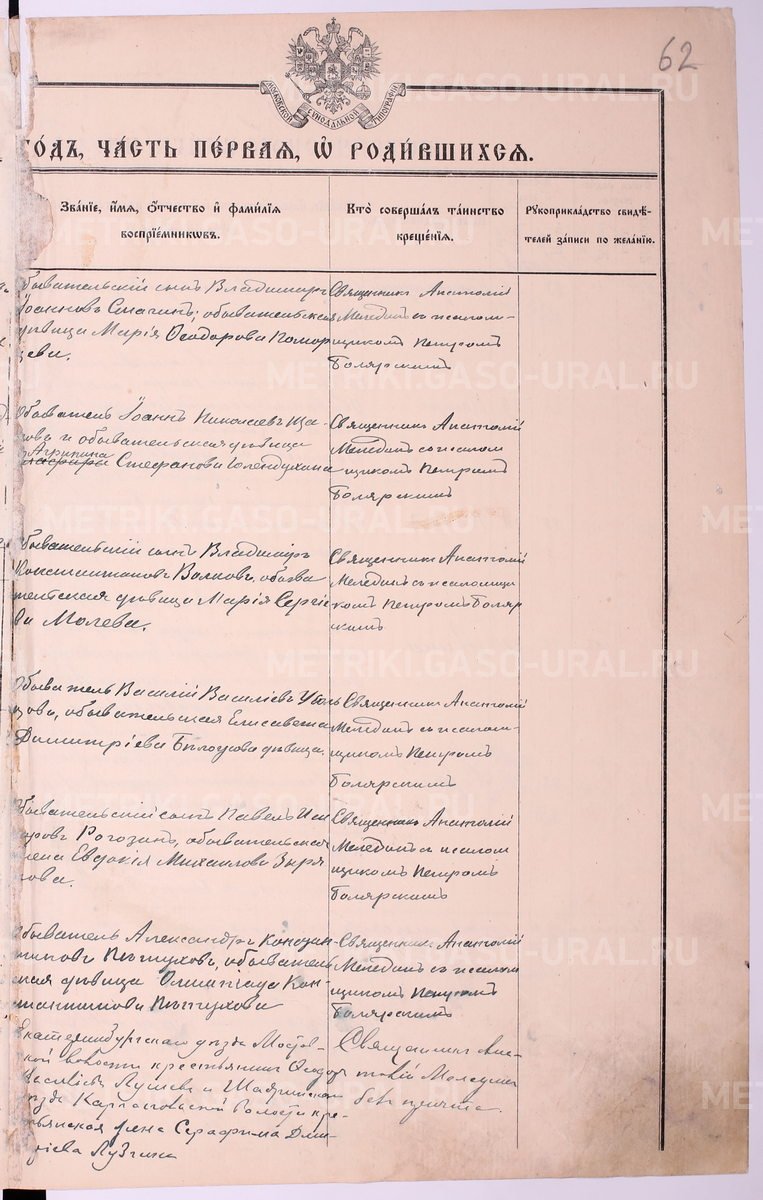 62
МОСКОВСКОЙ СѴНОДАЛЬНОЙ ТИПОГРАФІИ
ГО́ДЪ, ЧА́СТЬ ПЕ́РВАЯ, Ѡ РОДИ́ВШИХСЯ.
Зва́ніе, и́мя, о́тчество и фами́лія
воспрїе́мникѡвъ.
Кто̀ соверша́лъ та́инство
креще́нія.
Рꙋкоприкла́дство свидѣ́-
телей за́писи по жела́нію.
бывательскій сынъ Владимиръ
Іоанновъ обывательская
дѣвица Марія Ѳеодорова Помор
цева.
Священникъ Анатолій
Меледин съ псалом-
щикомъ Петромъ
Болярскимъ
Обыватель Іоаннъ Николаевъ
и обывательская дѣвица
Агрипина
Стефанова
Священникъ Анатолій
Меледин съ псалом
щикомъ Петромъ
Болярскимъ
бывательскій сынъ Владиміръ
Константиновъ Волковъ, обыва
тельская дѣвица Марія Сергіе
ва Молева.
Священникъ Анатолій
Меледин съ псаломщи
комъ Петромъ Боляр
скимъ
Обыватель Василій Василіевъ
обывательская Елисавета
Димитріева Бѣлоусова дѣвица.
Священникъ Анатолій
Меледин съ псалом-
щикомъ Петромъ
Болярскимъ
бывательскій сынъ Павелъ Иси
доровъ Рогозинъ, обывательская
жена Евдокія Михаилова Зыря
нова.
Священникъ Анатолій
Меледин съ псалом
щикомъ Петромъ
Болярскимъ
Обыватель Александръ Констан
тиновъ Пѣтуховъ, обыватель
ская дѣвица Олимпіада Кон-
стантинова Пѣтухова
Священникъ Анатолій
Меледин съ псалом
щикомъ Петромъ
Болярскимъ
Екатеринбургскаго уѣзда Мостов-
ской волости крестьянинъ Ѳеодоръ
Василіевъ и Шадринскаго
уѣзда волости кре-
стьянская жена Серафима Дми-
тріева
Священникъ Ана-
толій Меледин
без причта.
METRIKI.GASO-URAL.RU